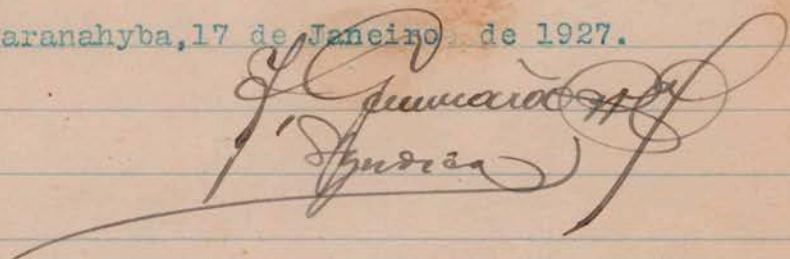 aranahyba,17 de Janeiro de 1927.
J. Guimarães
Syndico